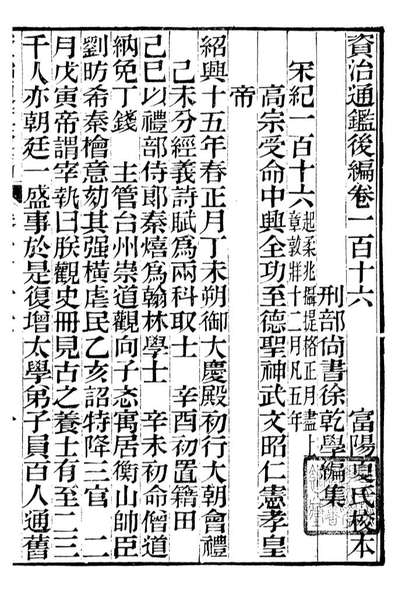 資治通鑑後編卷一百十六　富陽夏氏校本
刑部尚書徐乾學編集
宋紀一百十六 起柔兆攝提格正月盡上
章敦牂十二月凡五年
高宗受命中興全功至德聖神武文昭仁憲孝皇
帝
紹興十五年春正月丁未朔御大慶殿初行大朝會禮
己未分經義詩賦爲兩科取士　辛酉初置籍田
己巳以禮部侍郎秦熺爲翰林學士　辛未初命僧道
納免丁錢　主管台州崇道觀向子忞寓居衡山帥臣
劉昉希秦檜意劾其强橫虐民乙亥詔特降三官　二
月戊寅帝謂宰執曰朕觀史冊見古之養士有至二三
千人亦朝廷一盛事於是復增太學弟子員百人通舊